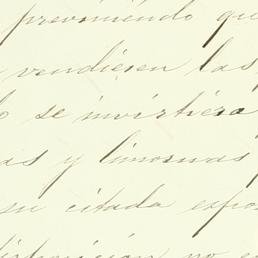 previniendo que
vendiesen las
se invirtiera
as y limosnas
su citada expo
disposicion no e